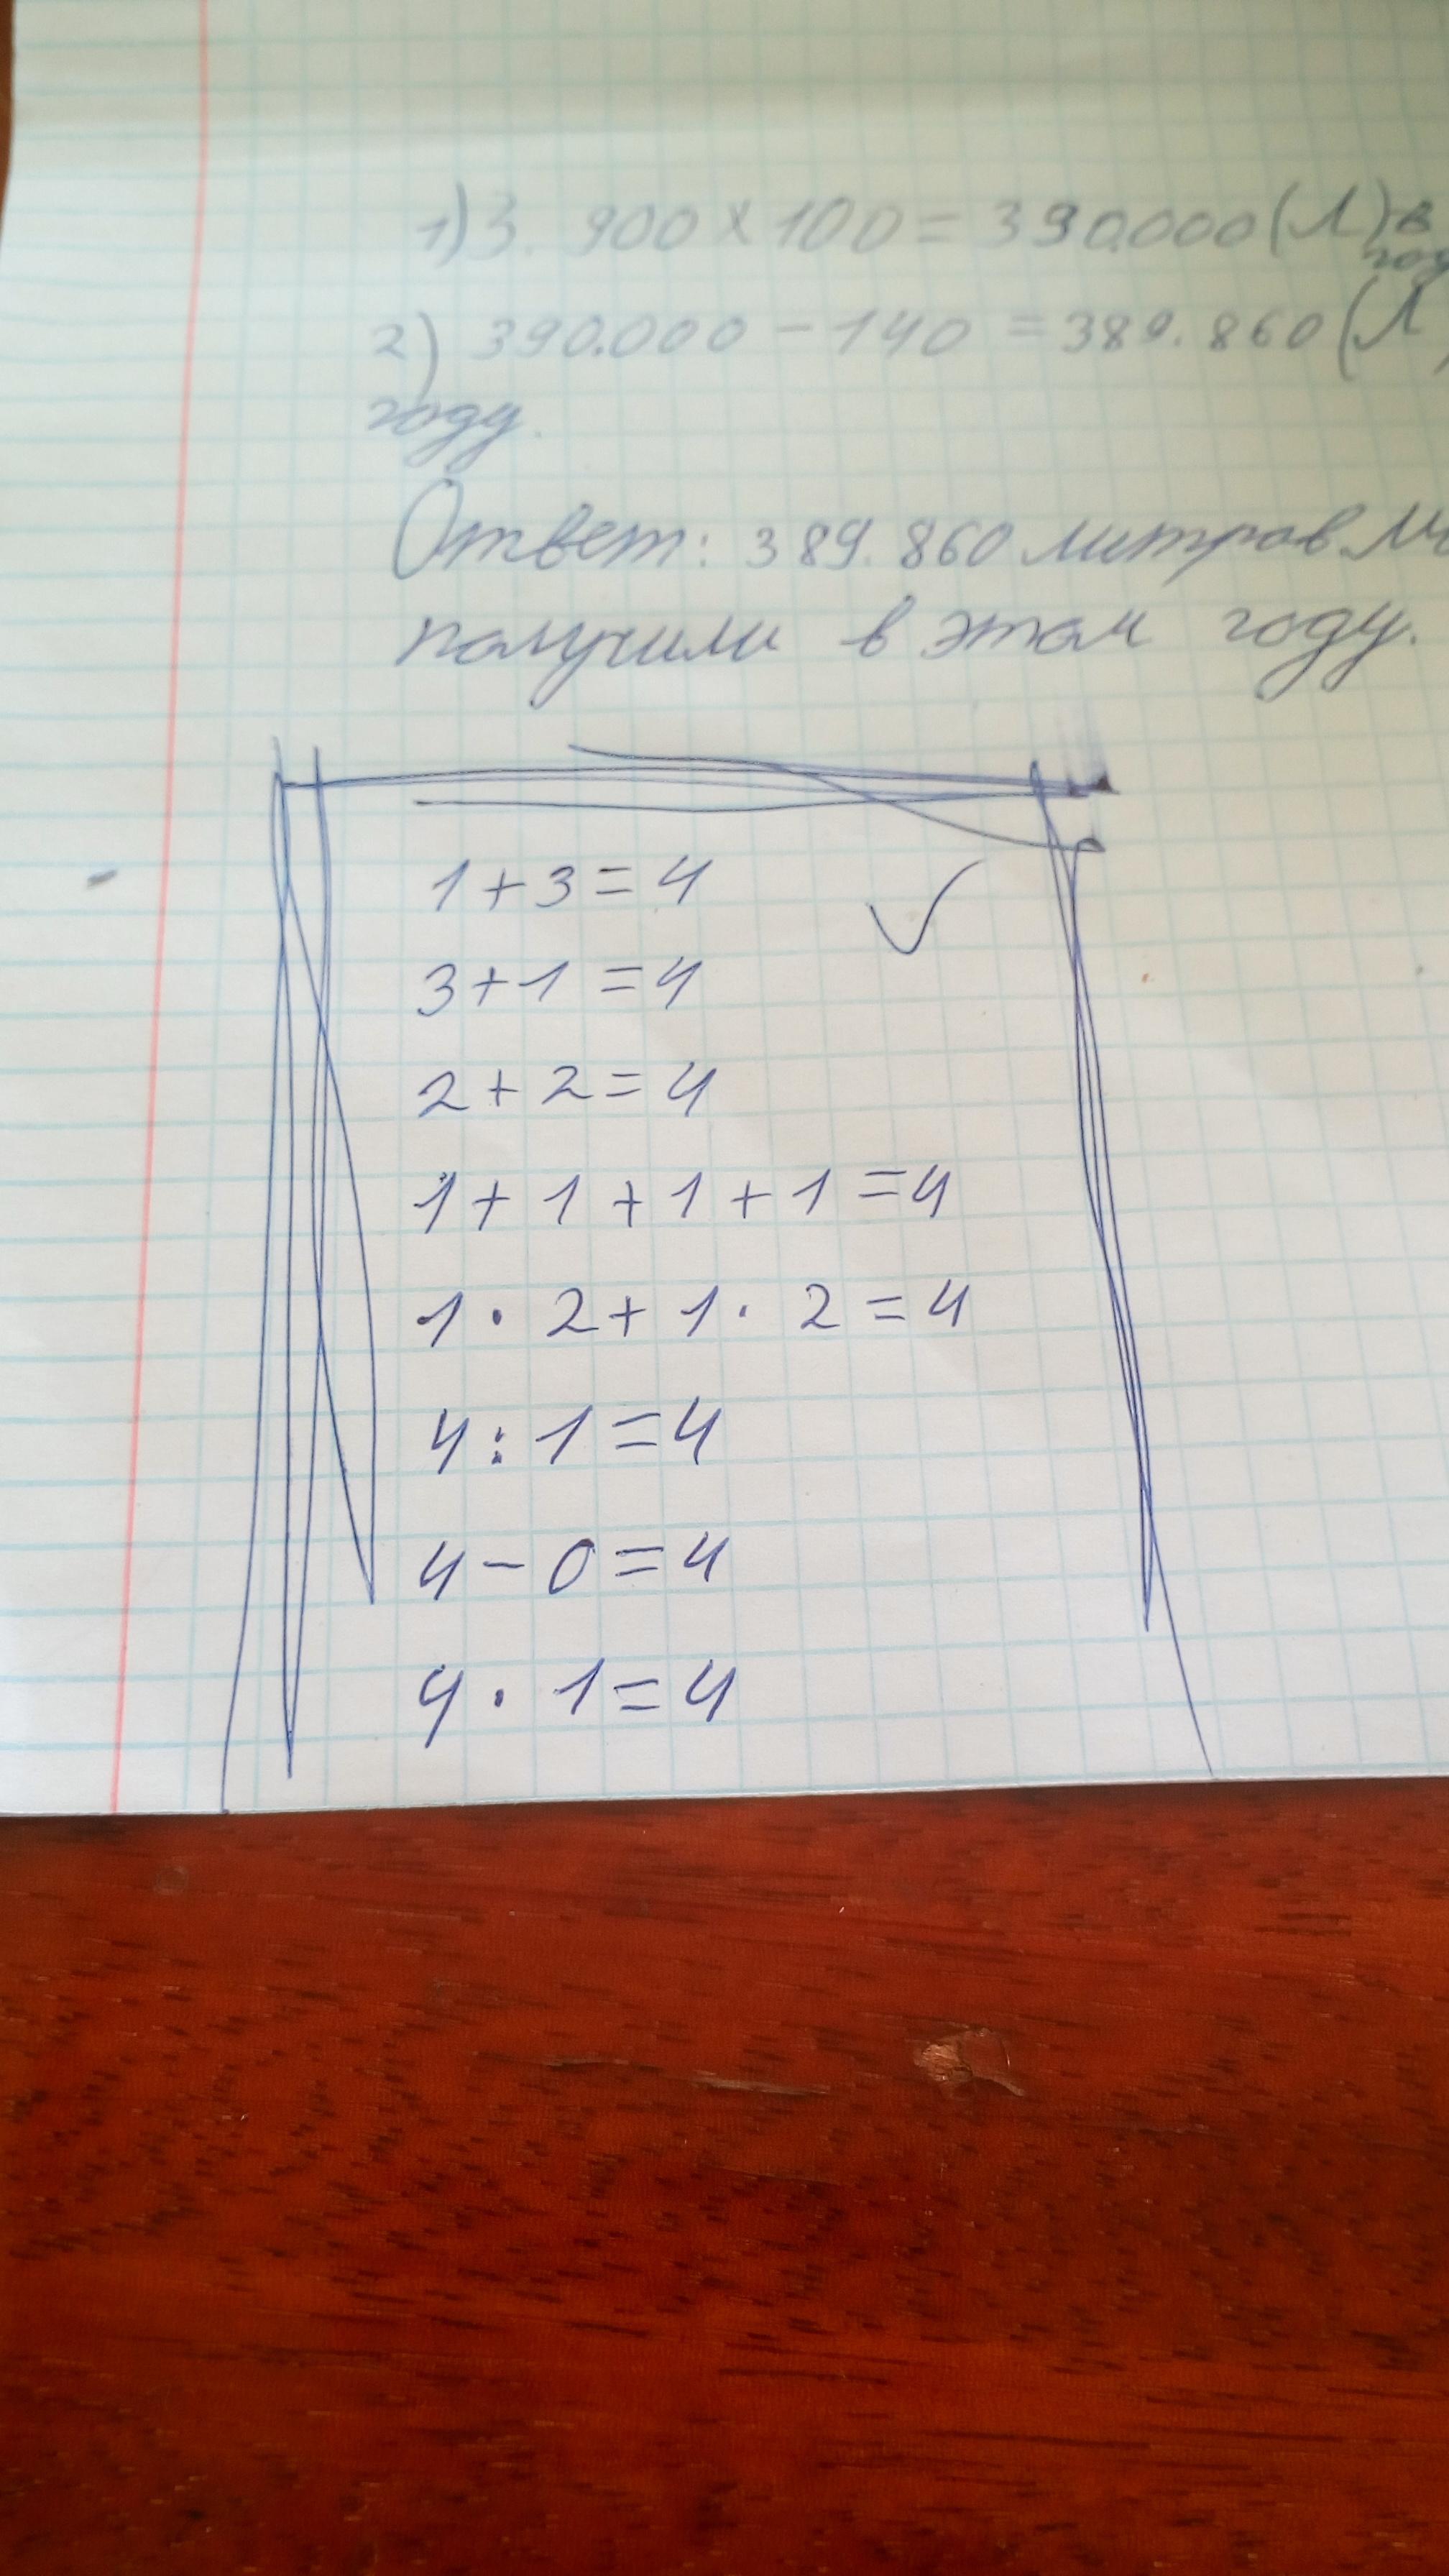 1) 3. 900 × 100 = 390.000 (Л) в
год
2) 390.000 - 140 = 389.860 (Л
году.
Ответ: 389.860 литров
получили в этом году.
1 + 3 = 4
3 + 1 = 4
2 + 2 = 4
1 + 1 + 1 + 1 = 4
1 · 2 + 1 · 2 = 4
4 : 1 = 4
4 - 0 = 4
4 · 1 = 4